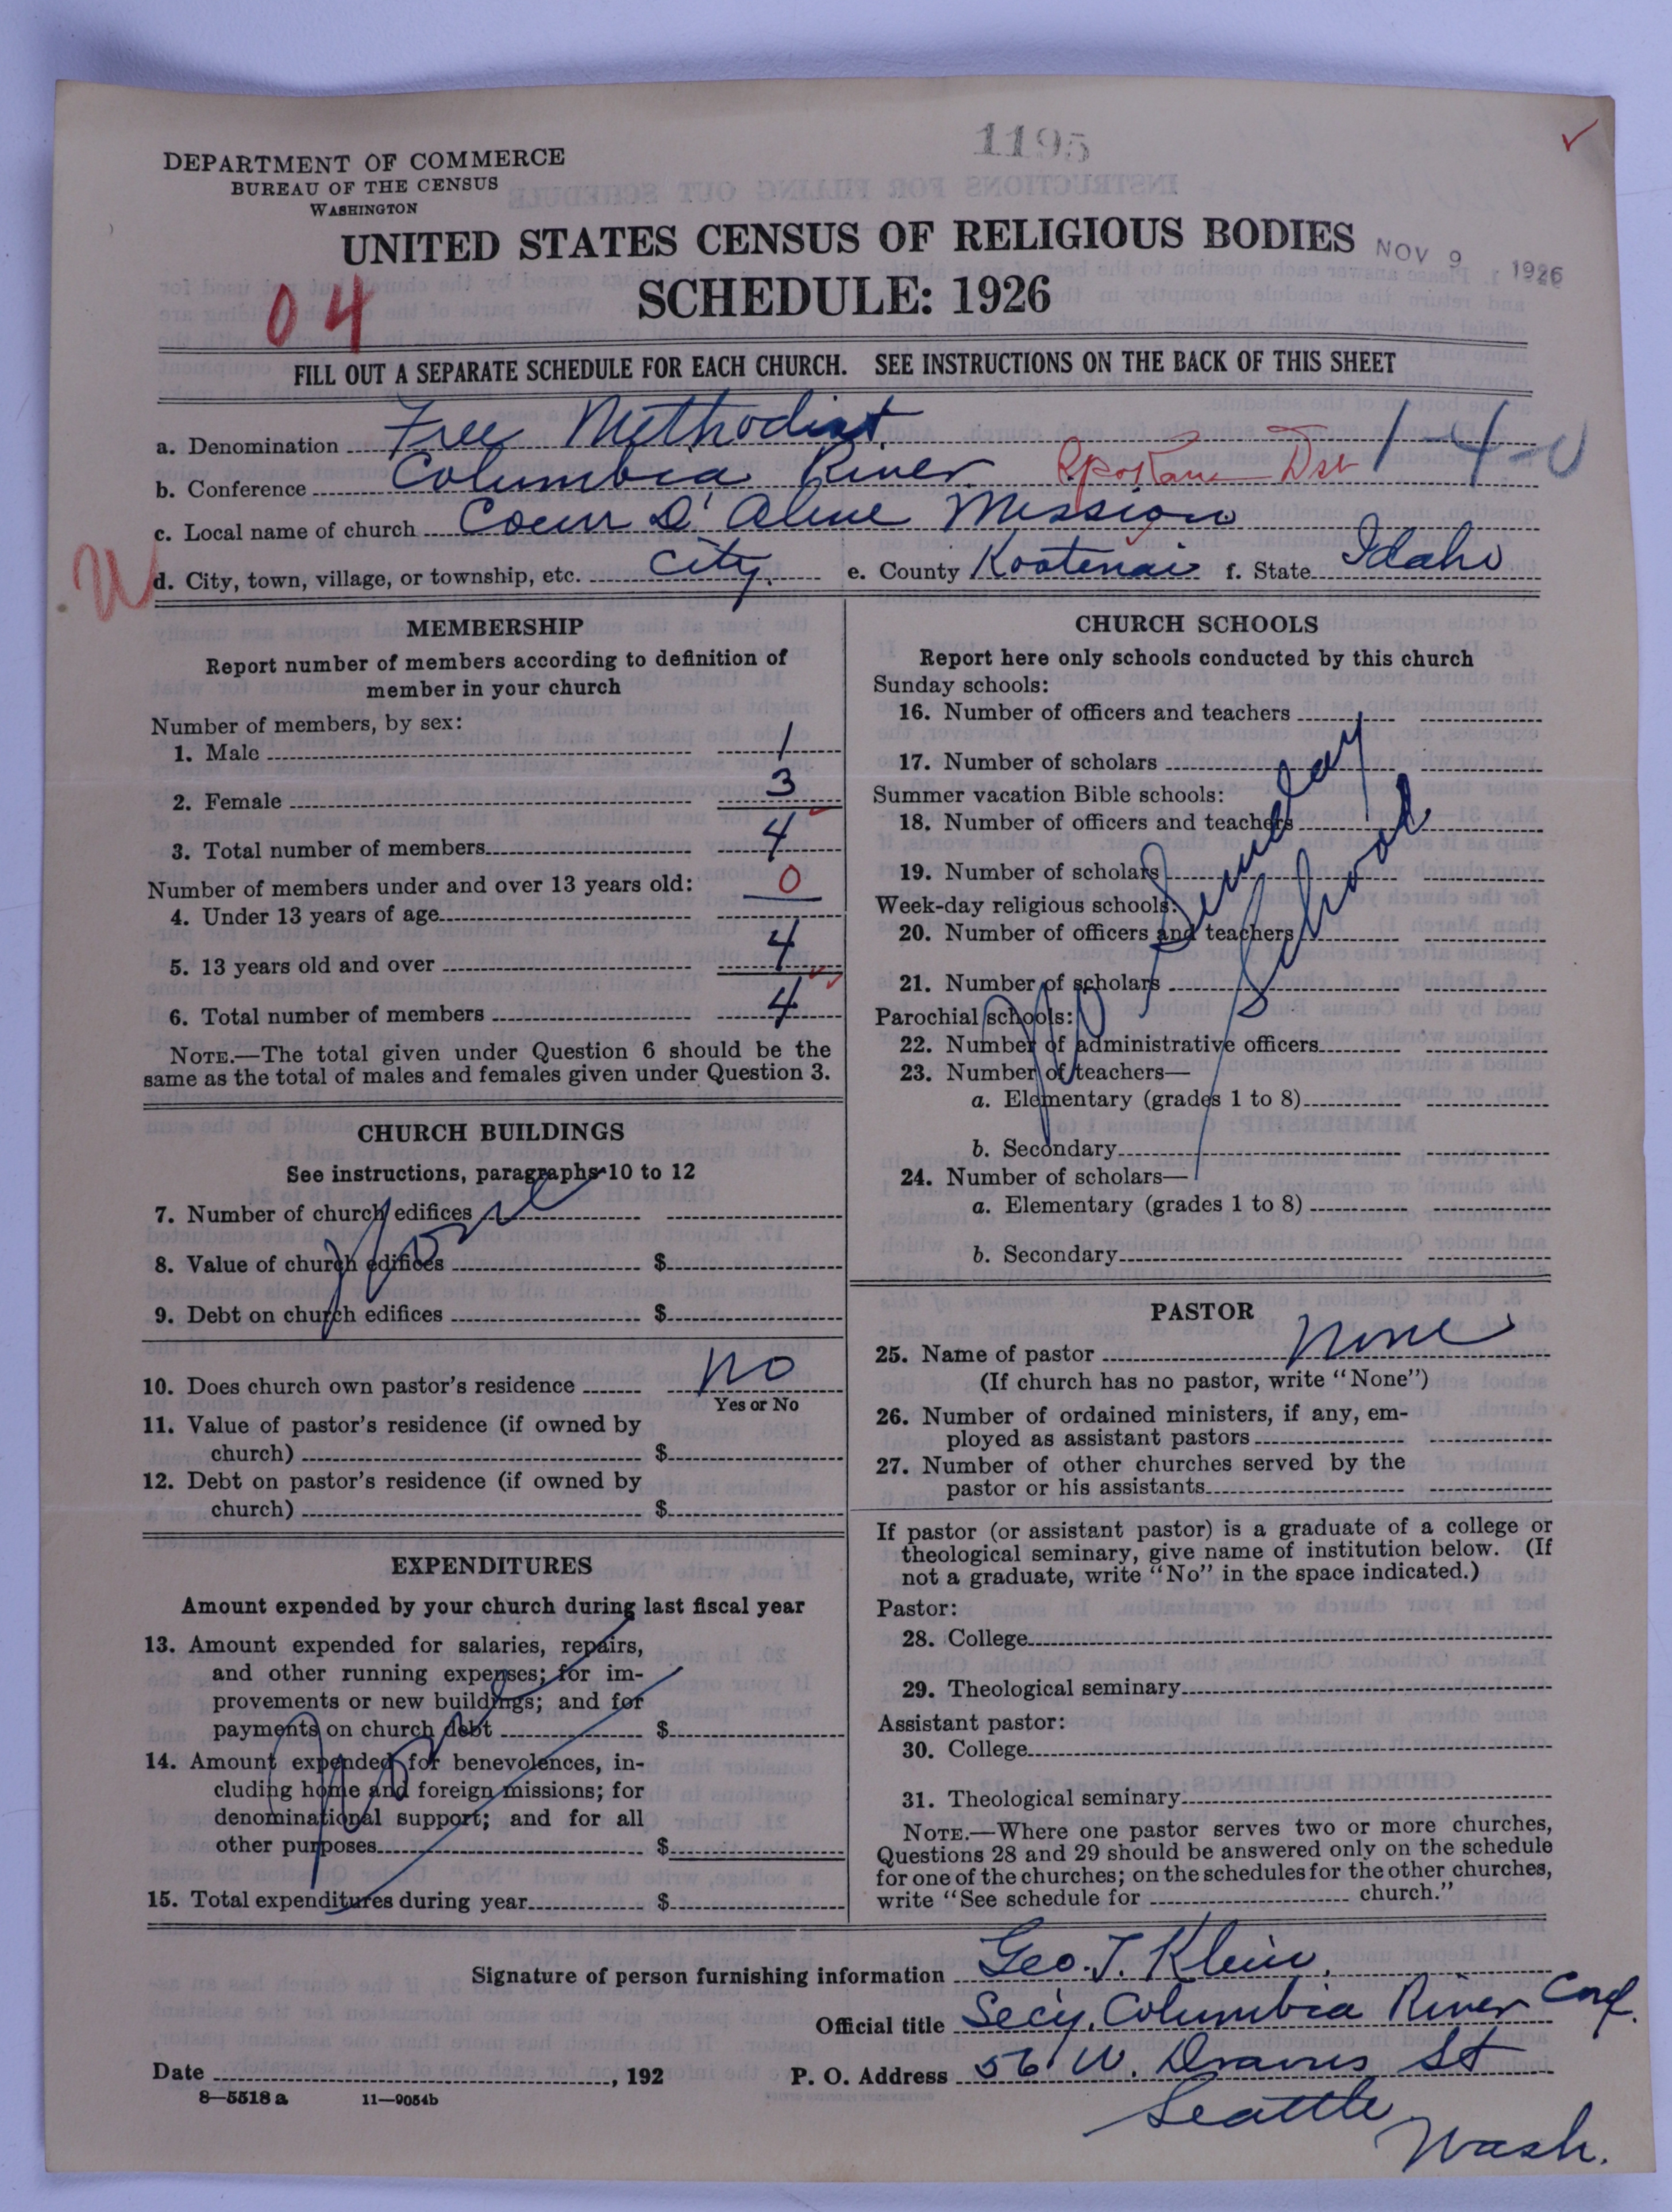 1195
DEPARTMENT OF COMMERCE
BUREAU OF THE CENSUS
WASHINGTON
UNITED STATES CENSUS OF RELIGIOUS BODIES
NOV 9 1926
SCHEDULE: 1926
04
FILL OUT A SEPARATE SCHEDULE FOR EACH CHURCH. SEE INSTRUCTIONS ON THE BACK OF THIS SHEET
a. Denomination Free Methodist
1-4-0
b. Conference Columbia River Spokane Dst
c. Local name of church Coeur D'Alene Mission
W
d. City, town, village, or township, etc. City. e. County Kootenai f. State Idaho
MEMBERSHIP
Report number of members according to definition of
member in your church
Number of members, by sex:
1. Male 1
2. Female 3
3. Total number of members 4
Number of members under and over 13 years old:
4. Under 13 years of age 0
5. 13 years old and over 4
6. Total number of members 4
NOTE.—The total given under Question 6 should be the
same as the total of males and females given under Question 3.
CHURCH BUILDINGS
See instructions, paragraphs 10 to 12
7. Number of church edifices
8. Value of church edifices $
9. Debt on church edifices $
None
10. Does church own pastor's residence no
Yes or No
11. Value of pastor's residence (if owned by
church) $
12. Debt on pastor's residence (if owned by
church) $
EXPENDITURES
Amount expended by your church during last fiscal year
13. Amount expended for salaries, repairs,
and other running expenses; for im-
provements or new buildings; and for
payments on church debt $
14. Amount expended for benevolences, in-
cluding home and foreign missions; for
denominational support; and for all
other purposes $
15. Total expenditures during year $
None
CHURCH SCHOOLS
Report here only schools conducted by this church
Sunday schools:
16. Number of officers and teachers
17. Number of scholars
Summer vacation Bible schools:
18. Number of officers and teachers
19. Number of scholars
Week-day religious schools:
20. Number of officers and teachers
21. Number of scholars
Parochial schools:
22. Number of administrative officers
23. Number of teachers—
a. Elementary (grades 1 to 8)
b. Secondary
24. Number of scholars—
a. Elementary (grades 1 to 8)
b. Secondary
No Sunday School
PASTOR
25. Name of pastor None
(If church has no pastor, write "None")
26. Number of ordained ministers, if any, em-
ployed as assistant pastors
27. Number of other churches served by the
pastor or his assistants
If pastor (or assistant pastor) is a graduate of a college or
theological seminary, give name of institution below. (If
not a graduate, write "No" in the space indicated.)
Pastor:
28. College
29. Theological seminary
Assistant pastor:
30. College
31. Theological seminary
NOTE.—Where one pastor serves two or more churches,
Questions 28 and 29 should be answered only on the schedule
for one of the churches; on the schedules for the other churches,
write "See schedule for church."
Signature of person furnishing information Geo. T. Klein.
Official title Secy. Columbia River Conf.
Date , 192 P. O. Address 56 W. Dravus St
8—5518 a 11—9054b
Seattle
Wash.